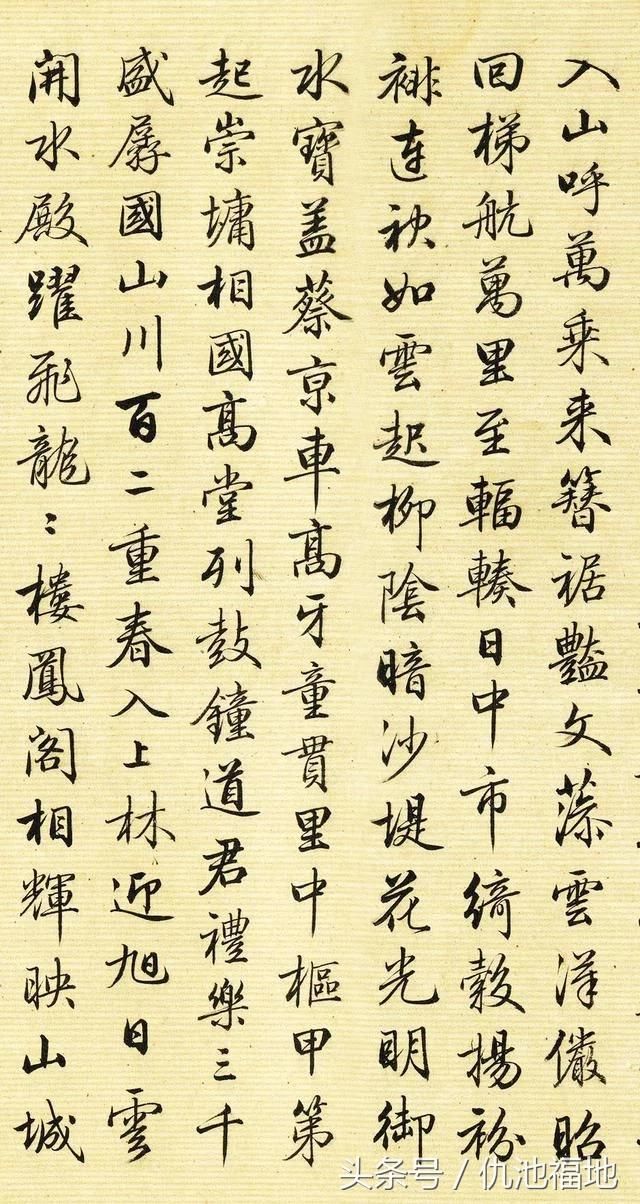 入山呼萬乗来簪裾豔文藻雲漢儼昭
回梯航萬里至輻輳日中市綺縠揚紛
裶連袂如雲起柳陰暗沙堤花光明御
水寶蓋蔡京車高牙童貫里中樞甲第
起崇墉相國高堂列鼓鐘道君禮樂三千
盛孱國山川百二重春入上林迎旭日雲
開水殿躍飛龍〻樓鳳閣相輝映山城
头条号 / 仇池福地